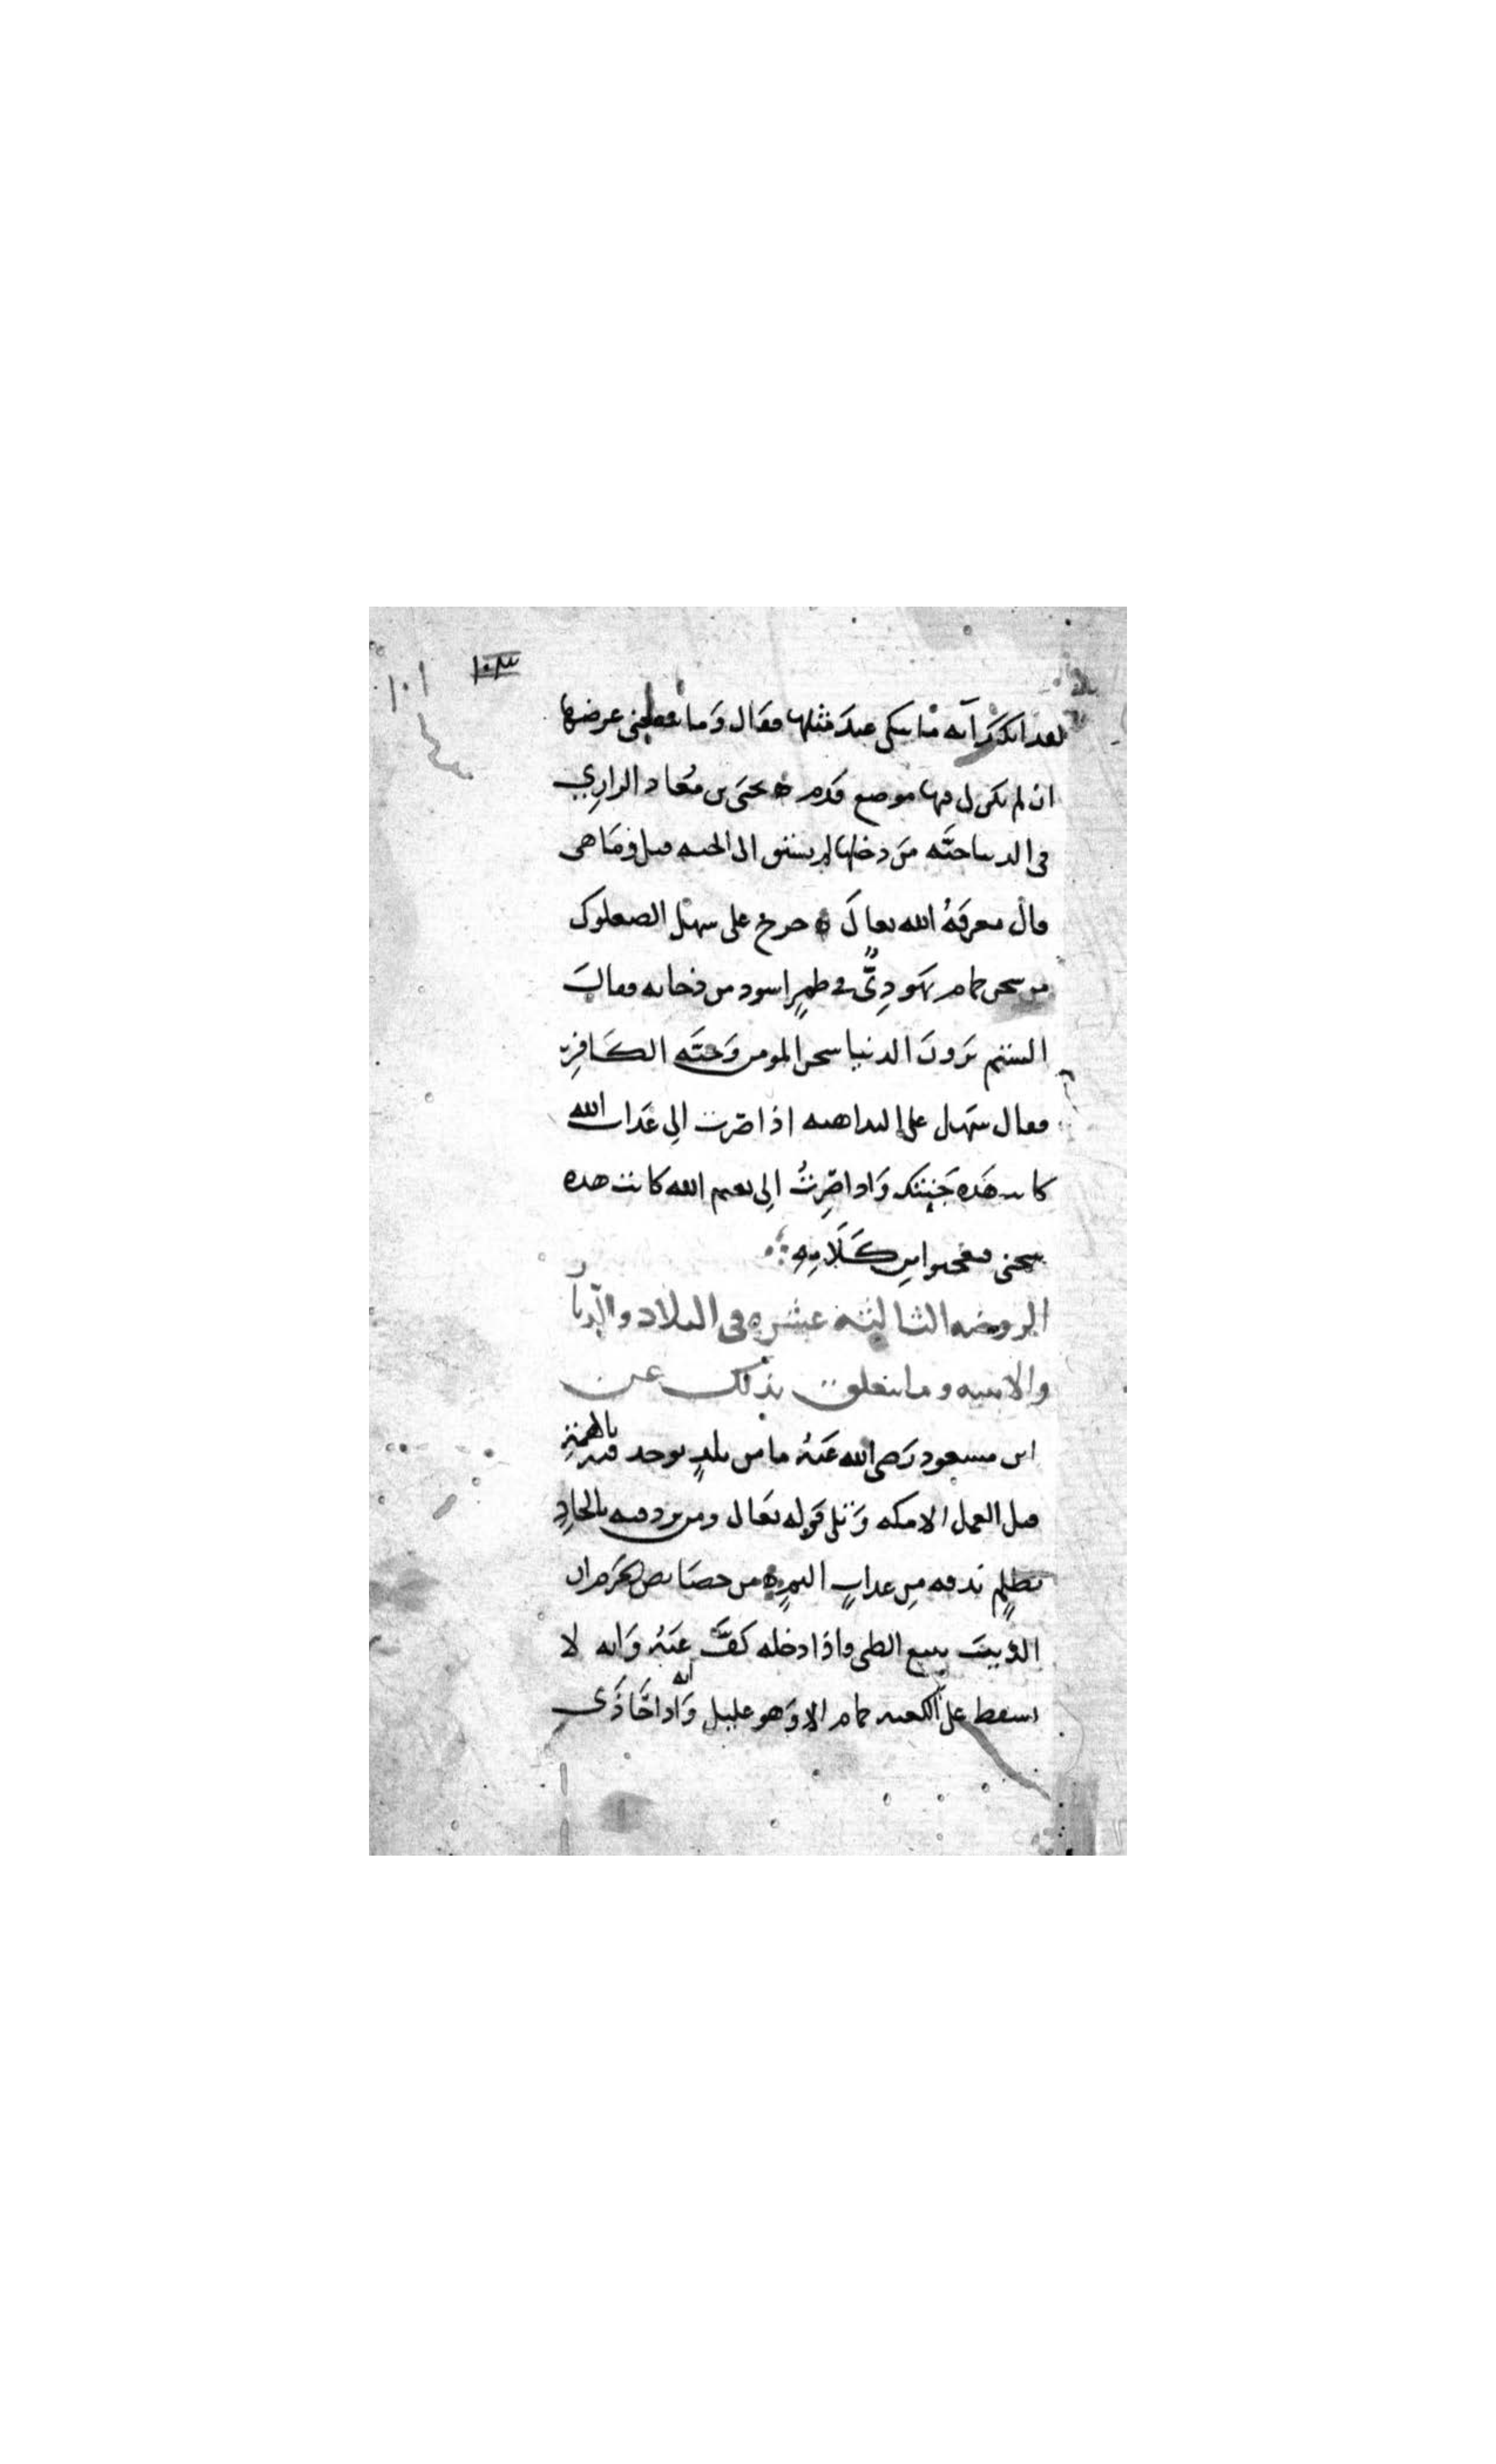 ١٠٣
١٠١
لقد اذكرت آية ما يبكى عند مثلها فقال وما ينفعنى عرضها
ان لم يكن لى فيها موضع قدم ٥ يحيى بن معاد الرازي
فى الدنيا جنّه من دخلها لم يشتق الى الجنه قيل وما هى
قال معرفة الله تعالى ٥ خرج على سهل الصعلوكى
من سجن حمام يهودىّ في طمرٍ اسود من دخانه فقال
الستم ترون الدنيا سجن المومن وجنّه الكافر
فقال سهل على البداهه اذا صرت الى عذاب الله
كانت هذه جنتك واذا صرت الى نعيم الله كانت هذه
سجنى فتعجبوا من كلامه
الروضه الثالثه عشره فى البلاد والديار
والابنيه وما يتعلق بذلك عن
ابن مسعود رضى الله عنه ما من بلدٍ يوخد فيه بالهمة
قبل العمل الا مكه وتلى قوله تعالى ومن يرد فيه بالحادٍ
بظلمٍ نذقه من عذابٍ اليمٍ ٥ من خصايص الحرم ان
الذيب يتبع الظبى فاذا دخله كفّ عنه وانه لا
يسقط على الكعبه حمام الا وهو عليل وانه اذا حاذى